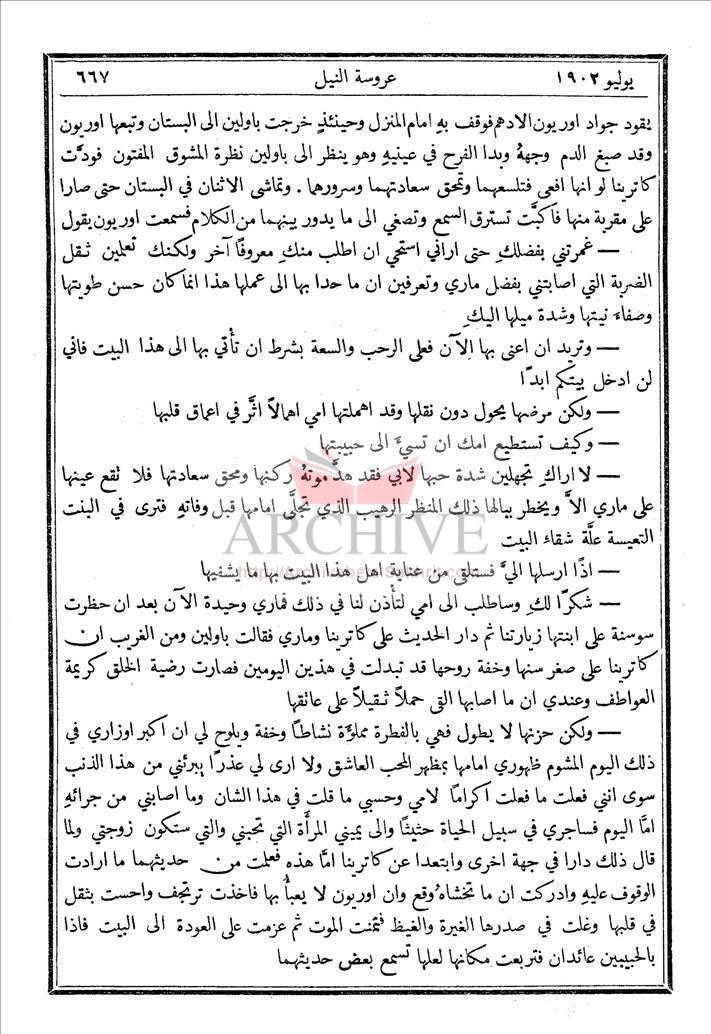 يوليو ١٩٠٢ عروسة النيل ٦٦٧
يقود جواد اوريون الادهم فوقف بهِ امام المنزل وحينئذٍ خرجت باولين الى البستان وتبعها اوريون
وقد صبغ الدم وجههُ وبدا الفرح في عينيهِ وهو ينظر الى باولين نظرة المشوق المفتون فودَّت
كاترينا لو انها افعى فتلسعهما وتمحق سعادتهما وسرورهما . وتماشى الاثنان في البستان حتى صارا
على مقربة منها فاكبَّت تسترق السمع وتصغي الى ما يدور بينهما من الكلام فسمعت اوريون يقول
— غمرتني بفضلكِ حتى اراني استحي ان اطلب منكِ معروفًا آخر ولكنك تعلمين ثقل
الضربة التي اصابتني بفضل ماري وتعرفين ان ما حدا بها الى عملها هذا انما كان حسن طويتها
وصفاء نيتها وشدة ميلها اليكِ
— وتريد ان اعنى بها الآن فعلى الرحب والسعة بشرط ان تأتي بها الى هذا البيت فاني
لن ادخل بيتكم ابدًا
— ولكن مرضها يحول دون نقلها وقد اهملتها امي اهمالاً اثَّر في اعماق قلبها
— وكيف تستطيع امك ان تسيءَ الى حبيبتها
— لا اراكِ تجهلين شدة حبها لابي فقد هدَّ موتهُ ركنها ومحق سعادتها فلا تقع عينها
على ماري الاَّ ويخطر ببالها ذلك المنظر الرهيب الذي تجلَّى امامها قبل وفاتهِ فترى في البنت
التعيسة علَّة شقاء البيت
— اذًا ارسلها اليَّ فستلقى من عناية اهل هذا البيت بها ما يشفيها
— شكرًا لكِ وساطلب الى امي لتأذن لنا في ذلك فماري وحيدة الآن بعد ان حظرت
سوسنة على ابنتها زيارتنا ثم دار الحديث على كاترينا وماري فقالت باولين ومن الغريب ان
كاترينا على صغر سنها وخفة روحها قد تبدلت في هذين اليومين فصارت رضية الخلق كريمة
العواطف وعندي ان ما اصابها القى حملاً ثقيلاً على عاتقها
— ولكن حزنها لا يطول فهي بالفطرة مملوَّة نشاطًا وخفة ويلوح لي ان اكبر اوزاري في
ذلك اليوم المشوم ظهوري امامها بمظهر المحب العاشق ولا ارى لي عذرًا يبرئني من هذا الذنب
سوى انني فعلت ما فعلت اكرامًا لامي وحسبي ما قلت في هذا الشان وما اصابني من جرائهِ
امَّا اليوم فساجري في سبيل الحياة حثيثًا والى يميني المرأة التي تحبني والتي ستكون زوجتي ولما
قال ذلك دارا في جهة اخرى وابتعدا عن كاترينا امَّا هذه فعلمت من حديثهما ما ارادت
الوقوف عليهِ وادركت ان ما تخشاهُ وقع وان اوريون لا يعبأُ بها فاخذت ترتجف واحست بثقل
في قلبها وغلت في صدرها الغيرة والغيظ فتمنت الموت ثم عزمت على العودة الى البيت فاذا
بالحبيبين عائدان فتربعت مكانها لعلها تسمع بعض حديثهما
ARCHIVE